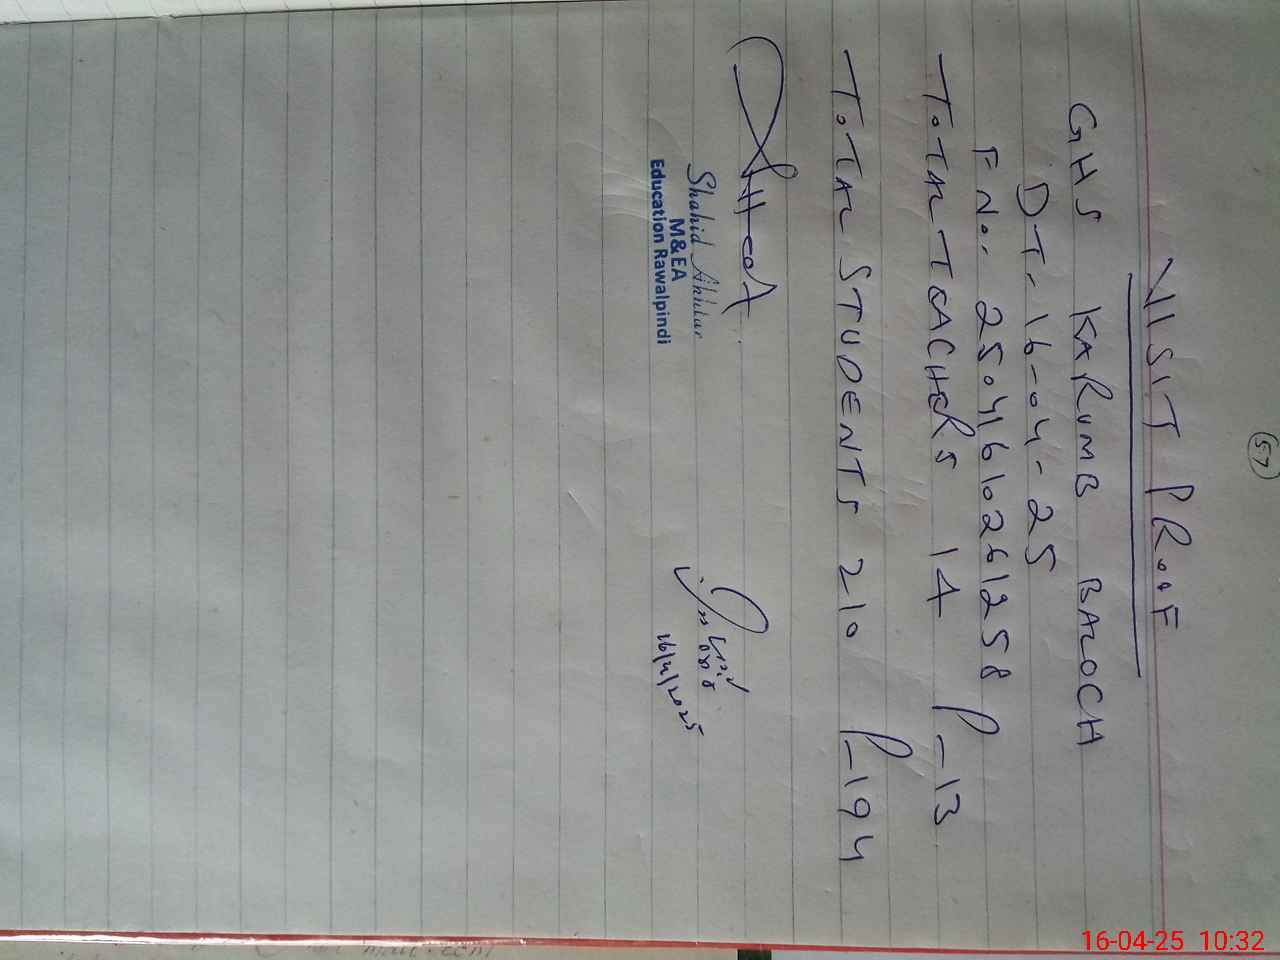 57
VISIT PROOF
GHS KARUMB BALOCH
DT- 16-04-25
FNo. 250416102612 58
TOTAL TEACHERS 14 P-13
TOTAL STUDENTS 210 P-194
Shahid Akhtar
M&EA
Education Rawalpindi
16/4/2025
16-04-25 10:32